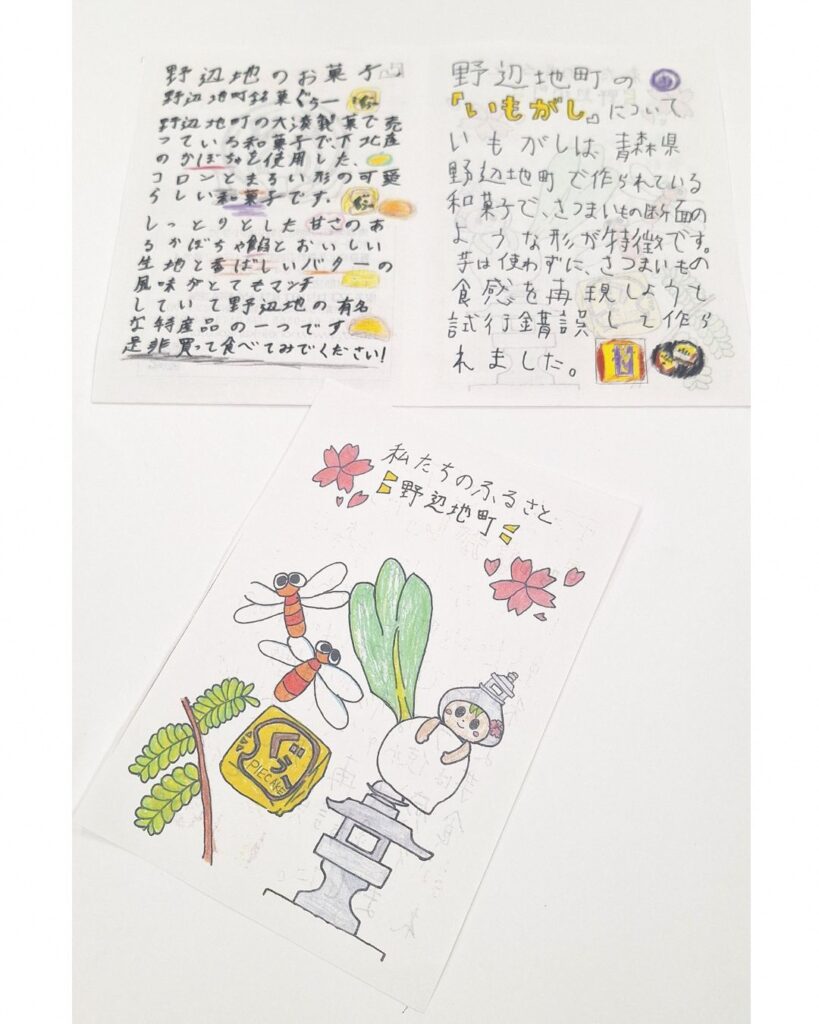 野辺地のお菓子
野辺地町銘菓ぐぅー
野辺地町の大湊製菓で売
っている和菓子で、下北産
のかぼちゃを使用した、
コロンとまるい形の可愛
らしい和菓子です。
しっとりとした甘さのあ
るかぼちゃ餡とおいしい
生地と香ばしいバターの
風味がとてもマッチ
していて野辺地の有名
な特産品の一つです
是非買って食べてみてください!
野辺地町の
『いもがし』について
いもがしは、青森県
野辺地町で作られている
和菓子で、さつまいもの断面の
ような形が特徴です。
芋は使わずに、さつまいもの
食感を再現しようと
試行錯誤して作ら
れました。
私たちのふるさと
野辺地町
PIECAKE